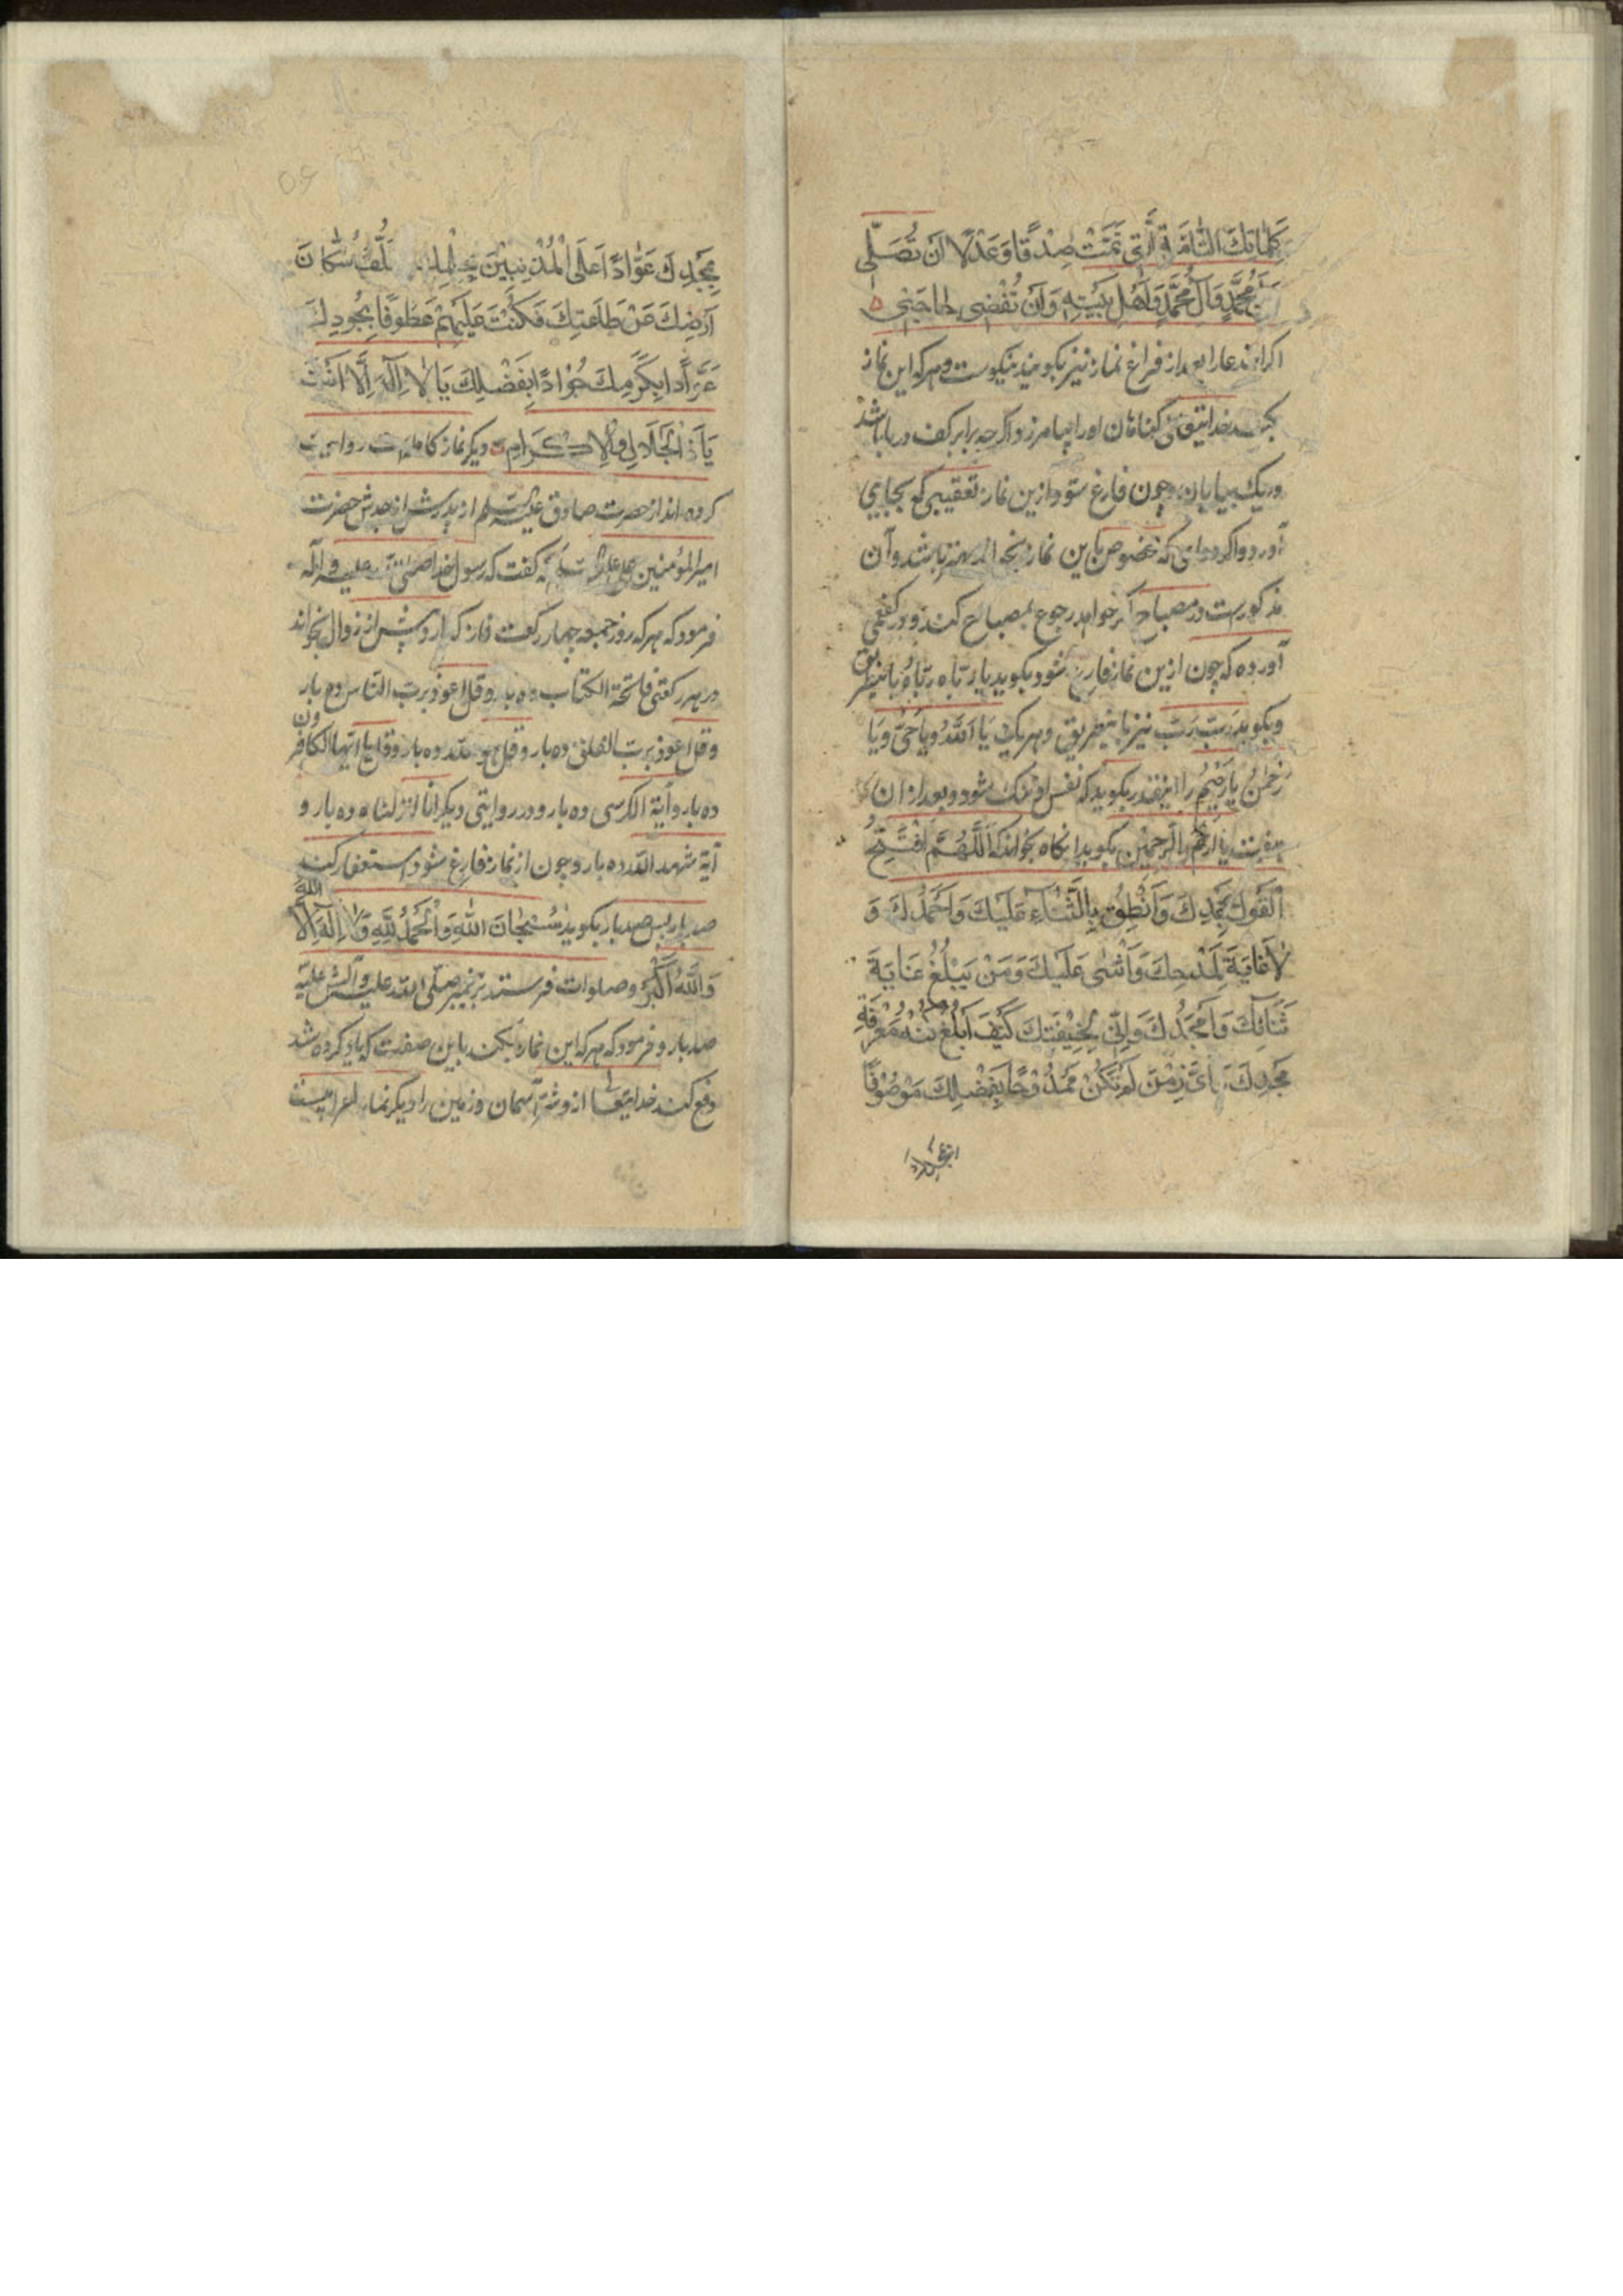 كَلِمَاتِكَ التَّامَّةِ الَّتِي تَمَّتْ صِدْقًا وَعَدْلًا اَنْ تُصَلِّىَ
مُحَمَّدٍ وَآلِ مُحَمَّدٍ وَاَهْلِ بَيْتِهِ وَاَنْ تُقْضِى لِى حَاجَتِى
اکر این دعا را بعد از فراغ نماز نیز بکویند نیکوست و هر که این نماز
بکند خدایتعالی کناهان اورا بیامرزد و اکر چه برابر کف دریا باشد
وریک بیابان و چون فارغ شود ازین نماز تعقیبی که بجای
آورد و اکر دعای که مخصوص باین نماز بخواند بهتر باشد و آن
مذکورست در مصباح اکر خواهد رجوع بمصباح کند و در کفعمی
آورده که چون ازین نماز فارغ شود بکوید یا رَبَّاه رَبَّاهُ باینطریق
و بکوید رَبِّ رَبِّ نیز باینطریق و هریک یَا اَللّٰهُ وَیَا حَیُّ وَیَا
رَحْمٰنُ یَا رَحِیْمُ را اینقدر بکوید که نفس او تنک شود و بعد از ان
هفت یا اَرْحَمَ الرَّاحِمِیْن بکوید انکاه بخواند که اَللّٰهُمَّ اَفْتَتِحُ
اَلْقَوْلَ بِحَمْدِكَ وَاَنْطِقُ بِالثَّنَاءِ عَلَيْكَ وَاَحْمَدُكَ وَ
لَا غَايَةَ لِمَدْحِكَ وَاُثْنِى عَلَيْكَ وَمَنْ يَبْلُغُ غَايَةَ
ثَنَائِكَ وَاُمَجِّدُكَ وَاِنّى لِخَلِيْقَتِكَ كَيْفَ اَبْلُغُ كُنْهَ مَعْرِفَةِ
مَجْدِكَ اَىَّ زَمَنٍ لَمْ تَكُنْ مَمْدُوْحًا بِفَضْلِكَ مَوْصُوْفًا
بِمَجْدِكَ عَوَّادًا عَلَى الْمُذْنِبِيْنَ بِحِلْمِكَ تَخَلَّفَ سُكَّانُ
اَرْضِكَ عَنْ طَاعَتِكَ فَكُنْتَ عَلَيْهِمْ عَطُوْفًا بِجُودِكَ
عَوَّادًا بِكَرَمِكَ جَوَادًا بِفَضْلِكَ يَا لَا اِلٰهَ اِلَّا اَنْتَ
يَا ذَا الْجَلَالِ وَالْاِكْرَامِ دیکر نماز کامله است روایت
کرده اند از حضرت صادق علیه السلم از پدرش از جدش حضرت
امیرالمؤمنین علی علیه السلم که کفت که رسول خدا صلی الله علیه و آله
فرمود که هر که روز جمعه چهار رکعت نماز کذارد پیش از زوال بخواند
در هر رکعتی فاتحة الکتاب ده بار و قل اعوذ برب الناس ده بار
و قل اعوذ برب الفلق ده بار و قل هو الله ده بار و قل یا ایها الکافرون
ده بار و آیة الکرسی ده بار و در روایتی دیکر انا انزلناه ده بار و
آیة شهد الله ده بار و چون از نماز فارغ شود استغفار کند
صد بار پس صد بار بکوید سُبْحَانَ اللّٰهِ وَاْلحَمْدُ لِلّٰهِ وَلَا اِلٰهَ اِلَّا اللّٰهُ
وَاللّٰهُ اَكْبَرُ و صلوات فرستد بر پیغمبر صلی الله علیه و آلش
صد بار و فرمود که هر که این نماز بکند باین صفت که یاد کرده شد
دفع کند خدایتعالی ازو شر آسمان و زمین را دیکر نماز اعرابیست